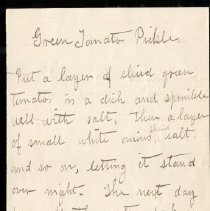 Green Tomato Pickle
Put a layer of sliced green
tomatos in a dish and sprinkle
well with salt. Then a layer
of small white onions, sliced salt
and so on, letting it stand
over night. The next day